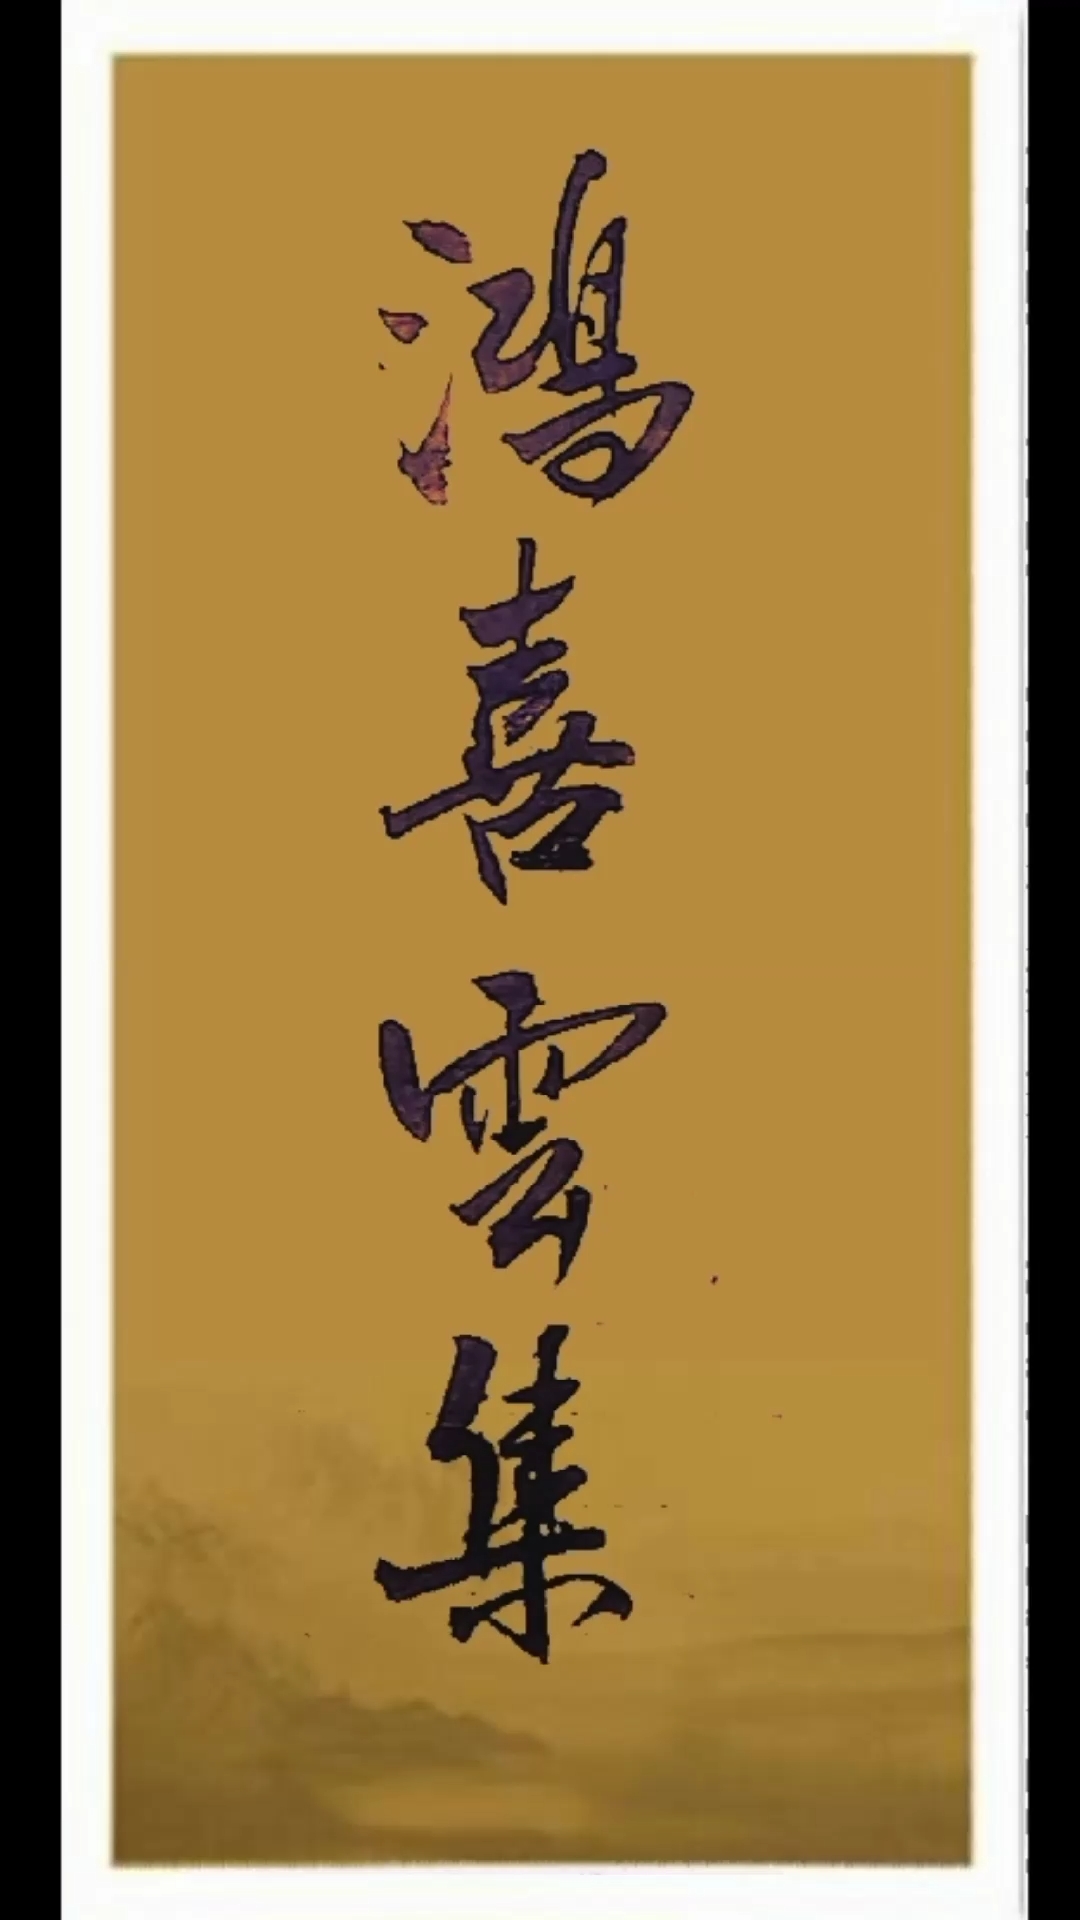 鴻喜雲集